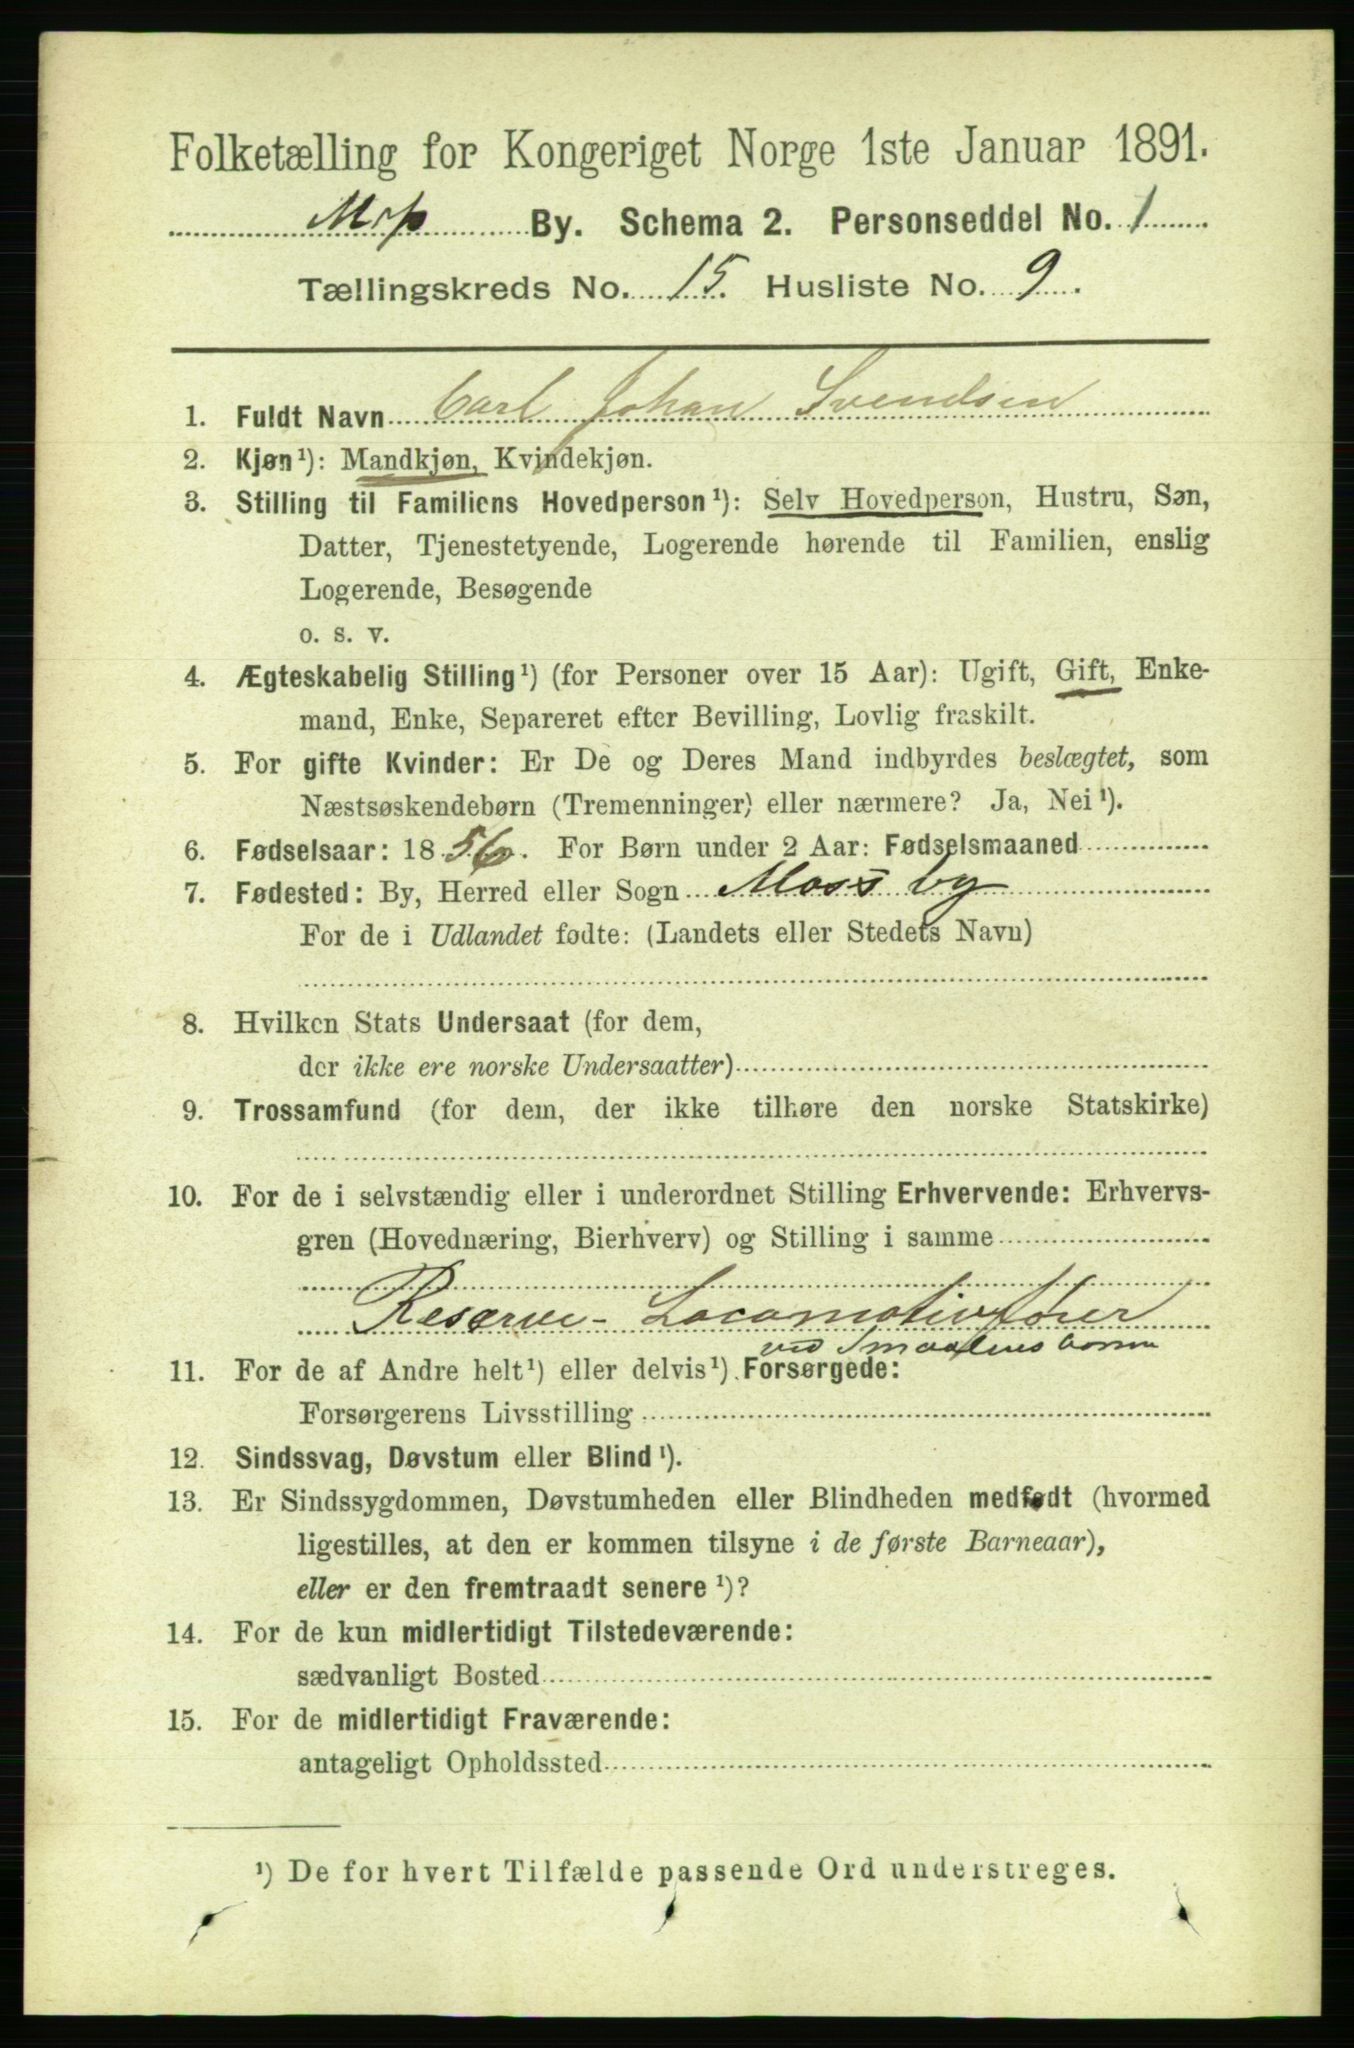 Folketælling for Kongeriget Norge 1ste Januar 1891.
Moss By. Schema 2. Personseddel No. 1
Tællingskreds No. 15. Husliste No. 9.
1. Fuldt Navn Carl Johan Svendsen
2. Kjøn¹): Mandkjøn, Kvindekjøn.
3. Stilling til Familiens Hovedperson¹): Selv Hovedperson, Hustru, Søn,
Datter, Tjenestetyende, Logerende hørende til Familien, enslig
Logerende, Besøgende
o. s. v.
4. Ægteskabelig Stilling¹) (for Personer over 15 Aar): Ugift, Gift, Enke-
mand, Enke, Separeret efter Bevilling, Lovlig fraskilt.
5. For gifte Kvinder: Er De og Deres Mand indbyrdes beslægtet, som
Næstsøskendebørn (Tremenninger) eller nærmere? Ja, Nei¹).
6. Fødselsaar: 1856. For Børn under 2 Aar: Fødselsmaaned
7. Fødested: By, Herred eller Sogn Moss by
For de i Udlandet fødte: (Landets eller Stedets Navn)
8. Hvilken Stats Undersaat (for dem,
der ikke ere norske Undersaatter)
9. Trossamfund (for dem, der ikke tilhøre den norske Statskirke)
10. For de i selvstændig eller i underordnet Stilling Erhvervende: Erhvervs-
gren (Hovednæring, Bierhverv) og Stilling i samme
Reserve-Locomotivfører
ved Smaalensbanen
11. For de af Andre helt¹) eller delvis¹) Forsørgede:
Forsørgerens Livsstilling
12. Sindssvag, Døvstum eller Blind¹).
13. Er Sindssygdommen, Døvstumheden eller Blindheden medfødt (hvormed
ligestilles, at den er kommen tilsyne i de første Barneaar),
eller er den fremtraadt senere¹)?
14. For de kun midlertidigt Tilstedeværende:
sædvanligt Bosted
15. For de midlertidigt Fraværende:
antageligt Opholdssted
¹) De for hvert Tilfælde passende Ord understreges.